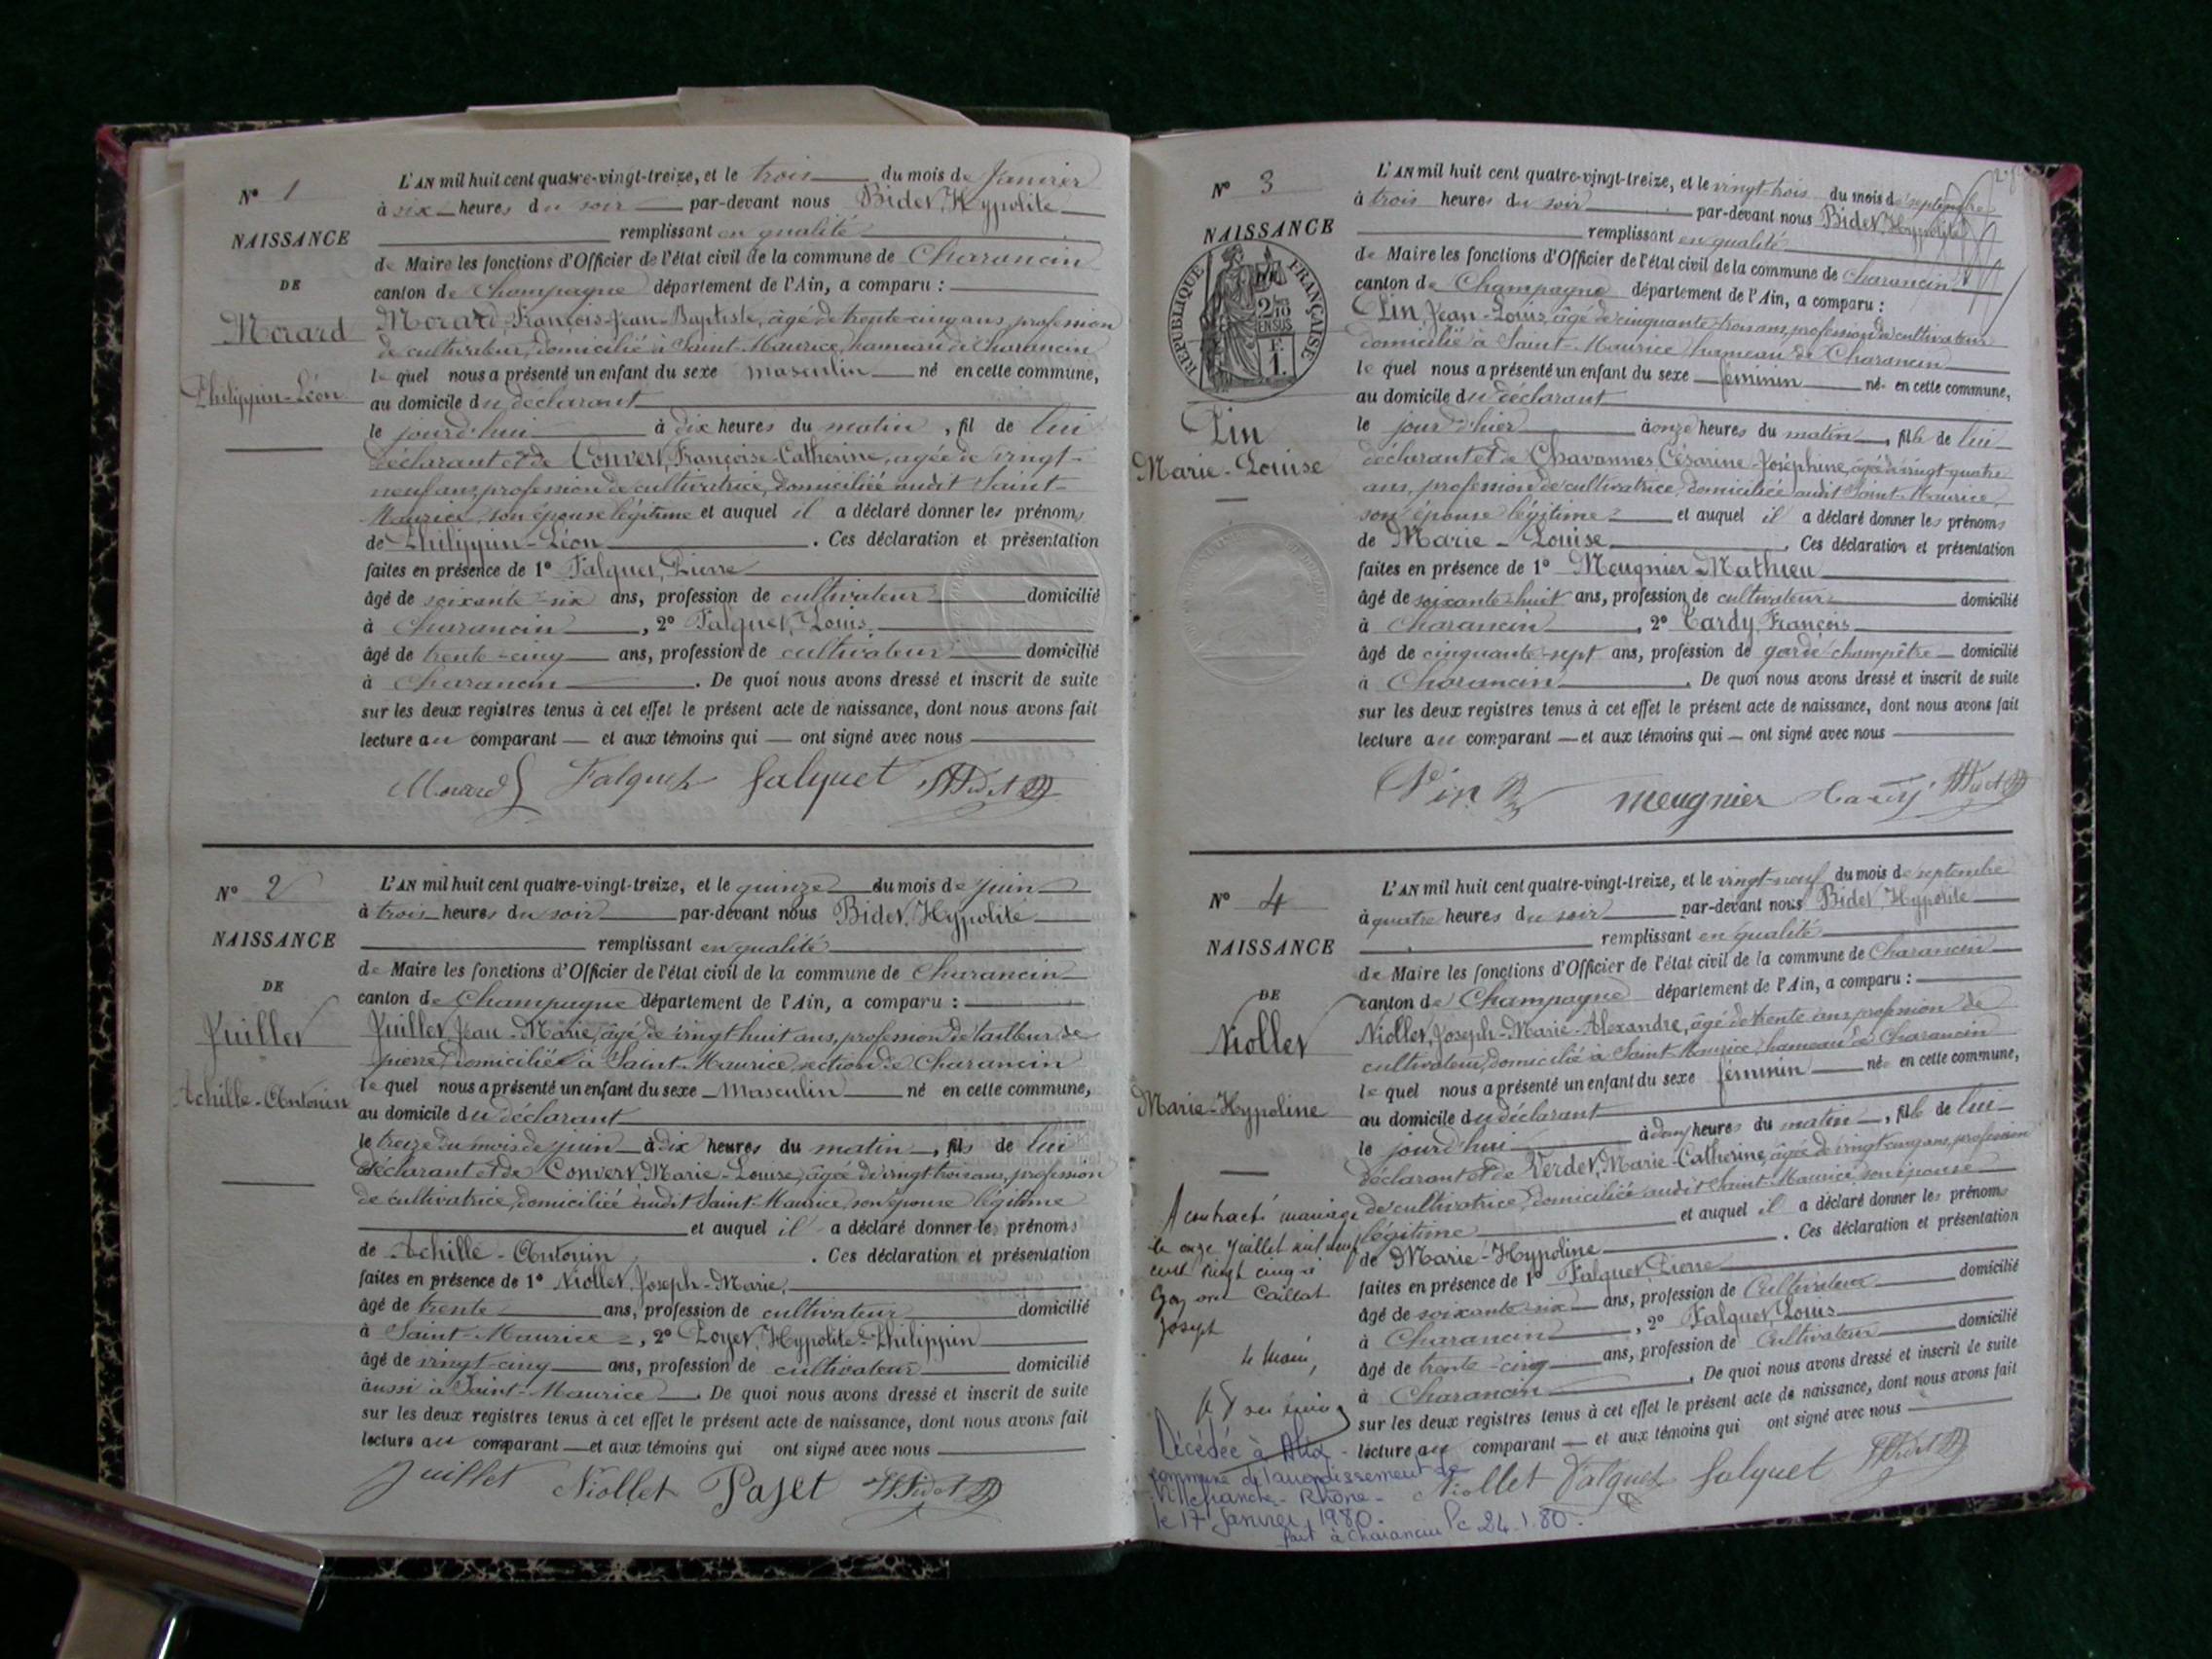 N° 1
NAISSANCE
DE
Morard
Philippin-Léon
L'AN mil huit cent quatre-vingt-treize, et le trois du mois de Janvier
à six heures du soir par-devant nous Bidet, Hypolite
remplissant en qualité
de Maire les fonctions d'Officier de l'état civil de la commune de Charancin
canton de Champagne département de l'Ain, a comparu :
Morard François-Jean-Baptiste, âgé de trente-cinq ans, profession
de cultivateur, domicilié à Saint-Maurice, hameau de Charancin
le quel nous a présenté un enfant du sexe masculin né en cette commune,
au domicile du déclarant
le jourd'hui à dix heures du matin, fil de lui
déclarant et de Convert, Françoise-Catherine, agée de vingt-
neuf ans, profession de cultivatrice, domiciliée audit Saint-
Maurice, son épouse légitime et auquel il a déclaré donner les prénoms
de Philippin-Léon. Ces déclaration et présentation
faites en présence de 1° Falquet, Pierre
âgé de soixante-six ans, profession de cultivateur domicilié
à Charancin, 2° Falquet, Louis
âgé de trente-cinq ans, profession de cultivateur domicilié
à Charancin. De quoi nous avons dressé et inscrit de suite
sur les deux registres tenus à cet effet le présent acte de naissance, dont nous avons fait
lecture au comparant et aux témoins qui ont signé avec nous
Morard Falquet Falquet HBidet
N° 2
NAISSANCE
DE
Juillet
Achille-Antonin
L'AN mil huit cent quatre-vingt-treize, et le quinze du mois de juin
à trois heures du soir par-devant nous Bidet, Hypolite
remplissant en qualité
de Maire les fonctions d'Officier de l'état civil de la commune de Charancin
canton de Champagne département de l'Ain, a comparu :
Juillet Jean-Marie, âgé de vingt-huit ans, profession de tailleur de
pierre, domicilié à Saint-Maurice, section de Charancin
le quel nous a présenté un enfant du sexe Masculin né en cette commune,
au domicile du déclarant
le treize du mois de juin à dix heures du matin, fils de lui
déclarant et de Convert, Marie-Louise, âgée de vingt-trois ans, profession
de cultivatrice, domiciliée audit Saint-Maurice, son épouse légitime
et auquel il a déclaré donner les prénoms
de Achille-Antonin. Ces déclaration et présentation
faites en présence de 1° Niollet, Joseph-Marie,
âgé de trente ans, profession de cultivateur domicilié
à Saint-Maurice, 2° Hypolite-Philippin
âgé de vingt-cinq ans, profession de cultivateur domicilié
aussi à Saint-Maurice. De quoi nous avons dressé et inscrit de suite
sur les deux registres tenus à cet effet le présent acte de naissance, dont nous avons fait
lecture au comparant et aux témoins qui ont signé avec nous
Juillet Niollet HBidet
N° 3
NAISSANCE
REPUBLIQUE FRANÇAISE
2/10 EN SUS
F. 1.
Pin
Marie-Louise
L'AN mil huit cent quatre-vingt-treize, et le vingt-trois du mois de septembre
à trois heures du soir par-devant nous Bidet, Hypolite
remplissant en qualité
de Maire les fonctions d'Officier de l'état civil de la commune de Charancin
canton de Champagne département de l'Ain, a comparu :
Pin, Jean-Louis, âgé de cinquante-trois ans, profession de cultivateur
domicilié à Saint-Maurice, hameau de Charancin
le quel nous a présenté un enfant du sexe féminin né en cette commune,
au domicile du déclarant
le jour d'hier à onze heures du matin, fille de lui
déclarant et de Chavannes Césarine-Joséphine, âgée de vingt-quatre
ans, profession de cultivatrice, domiciliée audit Saint-Maurice,
son épouse légitime et auquel il a déclaré donner les prénoms
de Marie-Louise. Ces déclaration et présentation
faites en présence de 1° Meugnier Mathieu
âgé de soixante-huit ans, profession de cultivateur domicilié
à Charancin, 2° Tardy, François
âgé de cinquante-sept ans, profession de garde champêtre domicilié
à Charancin. De quoi nous avons dressé et inscrit de suite
sur les deux registres tenus à cet effet le présent acte de naissance, dont nous avons fait
lecture au comparant et aux témoins qui ont signé avec nous
Pin meugnier Tardy HBidet
N° 4
NAISSANCE
DE
Niollet
Marie-Hypoline
L'AN mil huit cent quatre-vingt-treize, et le vingt-neuf du mois de septembre
à quatre heures du soir par-devant nous Bidet, Hypolite
remplissant en qualité
de Maire les fonctions d'Officier de l'état civil de la commune de Charancin
canton de Champagne département de l'Ain, a comparu :
Niollet, Joseph-Marie-Alexandre, âgé de trente ans, profession de
cultivateur, domicilié à Saint-Maurice, hameau de Charancin
le quel nous a présenté un enfant du sexe féminin né en cette commune,
au domicile du déclarant
le jourd'hui à deux heures du matin, fille de lui
déclarant et de Verdet, Marie-Catherine, âgée de vingt-cinq ans, profession
de cultivatrice, domiciliée audit Saint-Maurice, son épouse
légitime et auquel il a déclaré donner les prénoms
de Marie-Hypoline. Ces déclaration et présentation
faites en présence de 1° Falquet, Pierre
âgé de soixante-six ans, profession de Cultivateur domicilié
à Charancin, 2° Falquet, Louis
âgé de trente-cinq ans, profession de Cultivateur domicilié
à Charancin. De quoi nous avons dressé et inscrit de suite
sur les deux registres tenus à cet effet le présent acte de naissance, dont nous avons fait
lecture au comparant et aux témoins qui ont signé avec nous
Niollet Falquet Falquet HBidet
A contracté mariage
le onze Juillet mil neuf
cent vingt cinq à
avec Caillat
Joseph
le Maire,
Décédée à Alix
commune d'arrondissement de
Villefranche-Rhône-
le 17 janvier 1980.
fait à Charancin le 24.1.80.